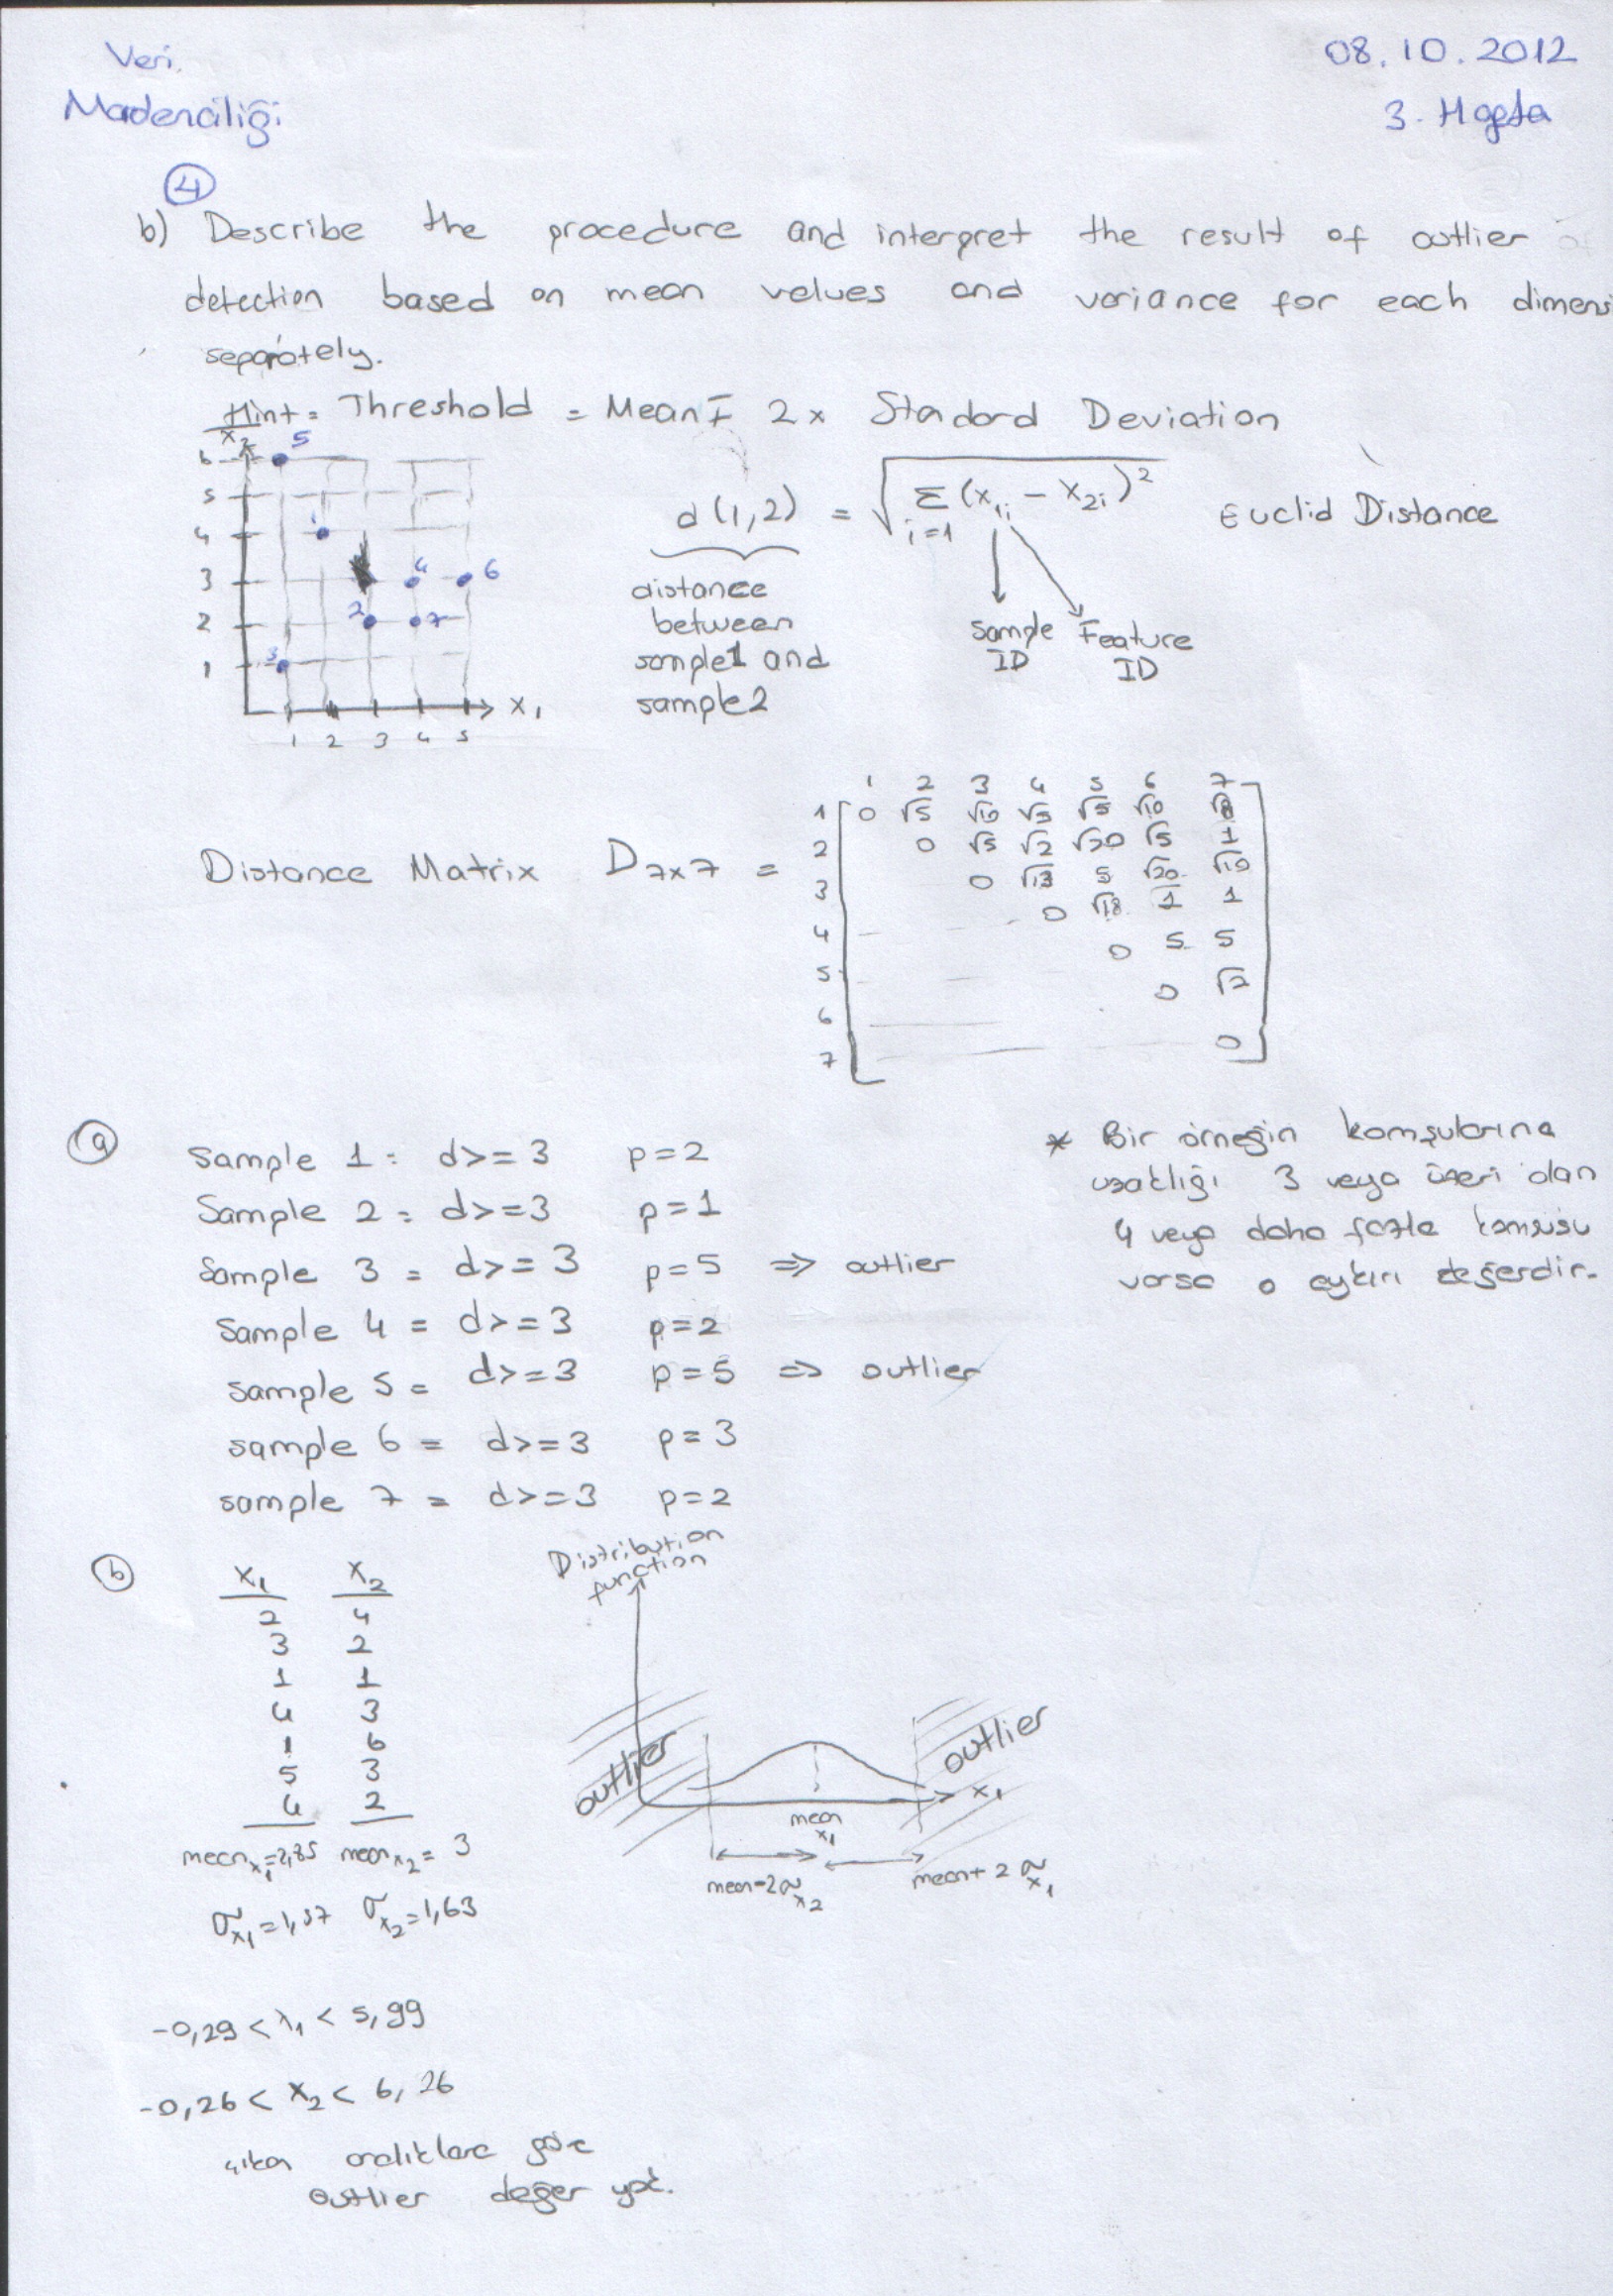 Veri
Madenciliği
08.10.2012
3. Hafta
4
b) Describe the procedure and interpret the result of outlier
detection based on mean values and variance for each dimens
separately.
Hint = Threshold = Mean ∓ 2x Stadard Deviation
x2
6 5
5
4 1
3 4 6
2 2 7
1 3
x1
1 2 3 4 5
d(1,2) = √Σ(x1i - x2i)² Euclid Distance
i=1
distance
between
sample1 and
sample2
Sample Feature
ID ID
Distance Matrix D7x7 =
1 2 3 4 5 6 7
1 0 √5 √10 √5 √5 √10 √8
2 0 √5 √2 √20 √5 1
3 0 √13 5 √20 √10
4 0 √18 1 1
5 0 5 5
6 0 √2
7 0
a
Sample 1 : d>=3 p=2
Sample 2 = d>=3 p=1
Sample 3 = d>=3 p=5 => outlier
Sample 4 = d>=3 p=2
sample 5 = d>=3 p=5 => outlier
sample 6 = d>=3 p=3
sample 7 = d>=3 p=2
* Bir örneğin komşularına
uzaklığı 3 veya üzeri olan
4 veya daha fazla komşusu
varsa o aykırı değerdir.
b
x1 x2
2 4
3 2
1 1
4 3
1 6
5 3
4 2
meanx1=2,85 meanx2= 3
σx1=1,57 σx2=1,63
Distribution
function
outlier
outlier
x1
mean
x1
mean-2σx2
mean+2σx1
-0,29 < x1 < 5,99
-0,26 < x2 < 6,26
çıkan aralıklara göre
outlier değer yok.